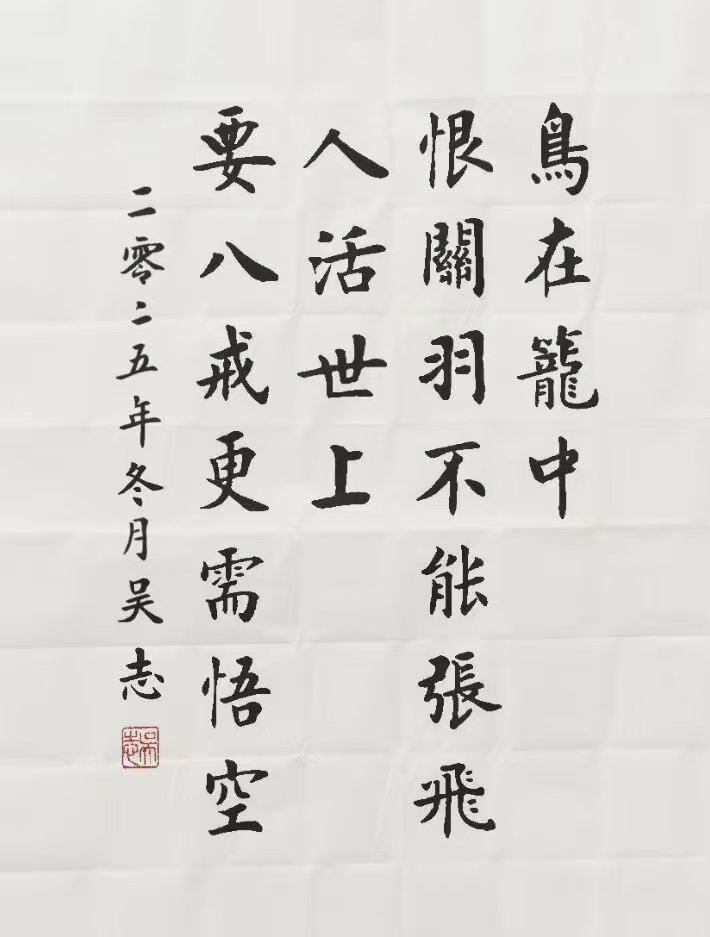 鳥在籠中
恨關羽不能張飛
人活世上
要八戒更需悟空
二零二五年冬月吴志
吴志